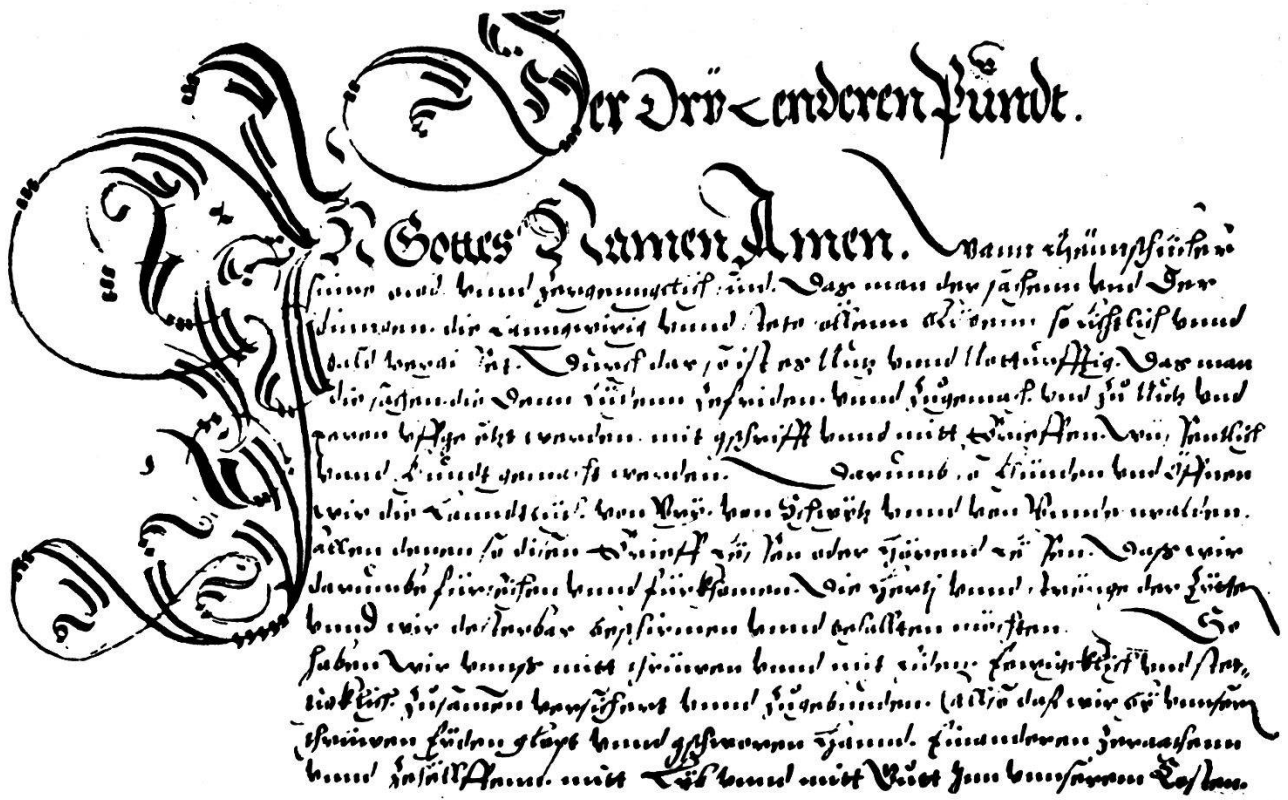 Der Drÿ Lenderen Pündt.
IN Gottes Namen Amen. Wann mäntschlicher
sinne blöd vnnd zergenngclich sind. Das man der sachenn vnd Der
dinngen. die lanngwirig vnnd stete söllenn so lichtlich vnnd
bald vergisset. Durch dar so ist es Nutz vnnd Notturfftig. Das man
die sachen. die Denn Lüttenn ze friden. vnnd zu gemach. vnd zu Nutz vnd
eeren vffgesetzt werden. mit gschrifft vnnd mitt Brieffen. Wüssentlich
vnnd kundt gemacht werden. Darumb so künden vnd öffnen
wir die Lanndtlüt. von Vrÿ. von Schwÿtz vnnd von Vnnderwalden.
allen denen so disen Brieff läsen oder hörend läsen. Das wir
darumbe fürsächen vnnd fürkhomen. Die hertj vnnd strennge der
vnnd wir dester bas beschirmen vnnd behallten möchten. So
haben wir vnnß mitt thrüwen vnnd mit eiden. Eewigcklich vnd stet-
tigklich. zusamen versichert vnnd zugebunden. Allso das wir bÿ vnnsern
thrüwen Eÿden globt vnnd gschworen hannd. Einanderen
vnnd zehälffenn. mitt Lÿb vnnd mitt Gutt Inn vnnserem Costen.